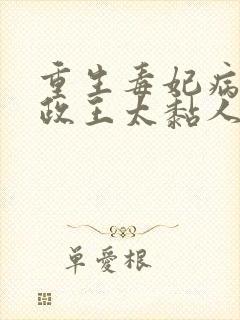 重生毒妃病
政王太黏人
单爱根